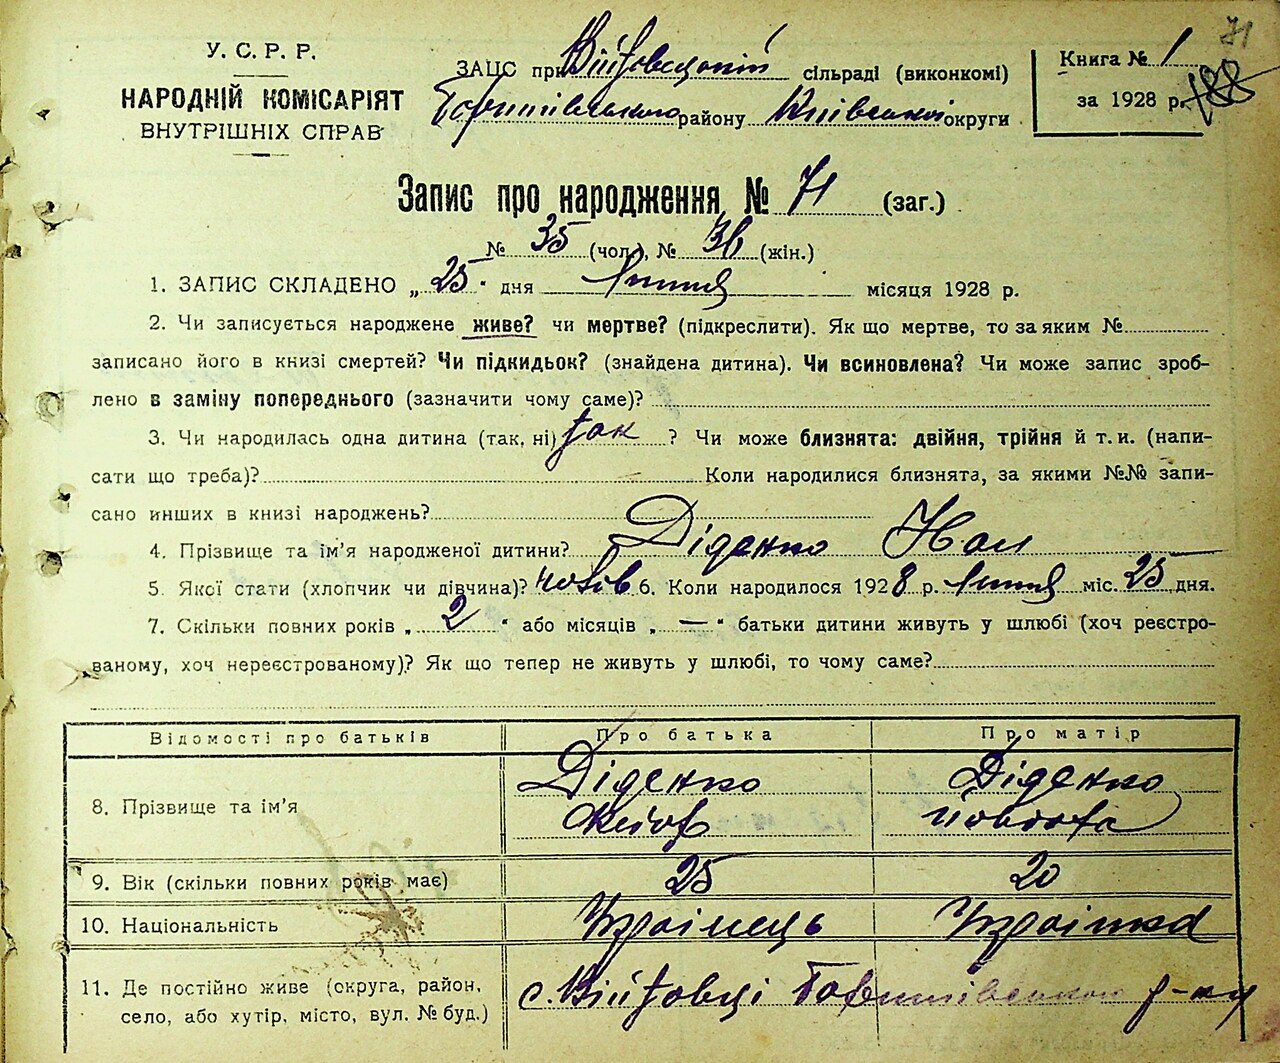 71
У. С. Р. Р.
НАРОДНІЙ КОМІСАРІЯТ
ВНУТРІШНІХ СПРАВ
ЗАЦС при Війтовецькій сільраді (виконкомі)
району Київської округи
Книга № 1
за 1928 р. 188
Запис про народження № 71 (заг.)
№ 35 (чол.), № 36 (жін.)
1. ЗАПИС СКЛАДЕНО „ 25 " дня липня місяця 1928 р.
2. Чи записується народжене живе? чи мертве? (підкреслити). Як що мертве, то за яким №
записано його в книзі смертей? Чи підкидьок? (знайдена дитина). Чи всиновлена? Чи може запис зроб-
лено в заміну попереднього (зазначити чому саме)?
3. Чи народилась одна дитина (так, ні) так ? Чи може близнята: двійня, трійня й т. и. (напи-
сати що треба)? Коли народилися близнята, за якими №№ запи-
сано инших в книзі народжень?
4. Прізвище та ім'я народженої дитини? Діденко
5. Якої статі (хлопчик чи дівчина)? чолов 6. Коли народилося 1928 р. липня міс. 25 дня.
7. Скільки повних років „ 2 " або місяців „ — " батьки дитини живуть у шлюбі (хоч реєстро-
ваному, хоч нереєстрованому)? Як що тепер не живуть у шлюбі, то чому саме?
Відомості про батьків Про батька Про матір
8. Прізвище та ім'я Діденко Діденко
9. Вік (скільки повних років має) 25 20
10. Національність Українець Українка
11. Де постійно живе (округа, район, село, або хутір, місто, вул. № буд.) с. Війтовці р-ну